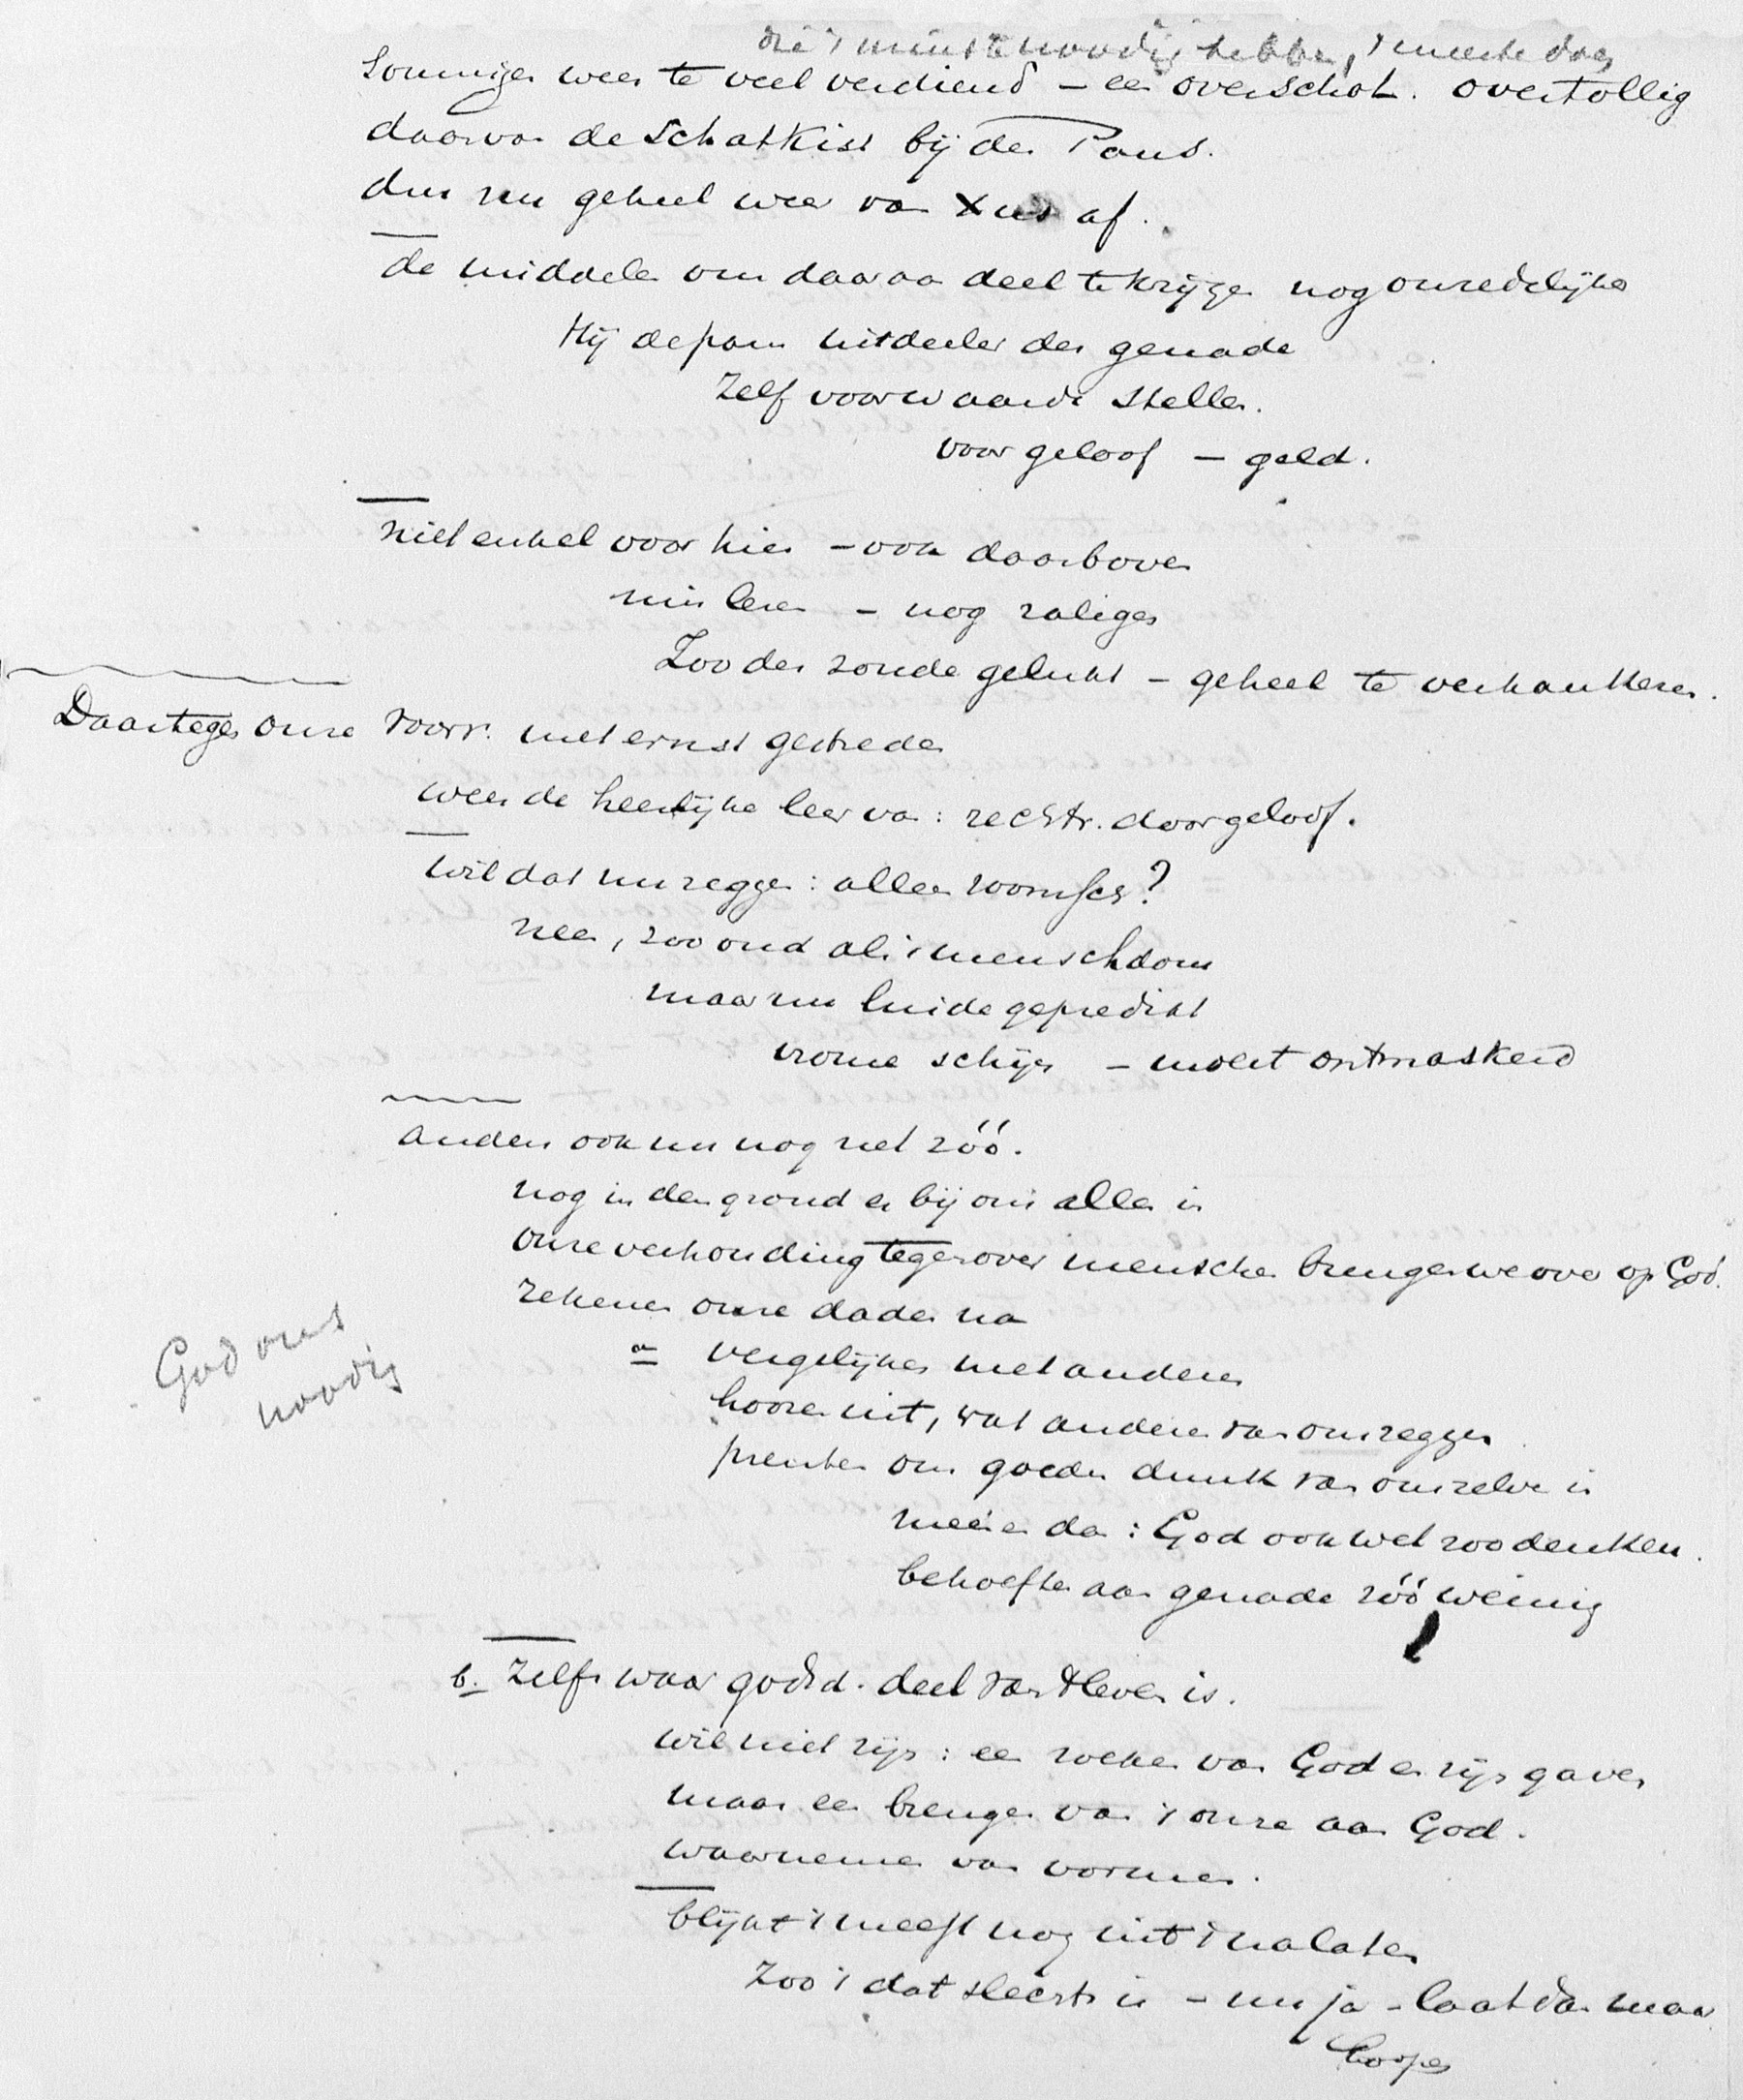 die 't minste noodig hebben, 't meeste doen
Sommigen weer te veel verdiend – een overschot. overtollig
daarvan de Schatkist bij den Paus.
dus nu geheel weer van Xus af.
de middelen om daaraan deel te krijgen nog onredelijker
Hij de paus uitdeeler der genade
Zelf voorwaarde stellen.
voor geloof – geld.
niet enkel voor hier – ook daarboven
– nog zaliger
Zoo der zonde gelukt – geheel te verkankeren.
Daartegen onze voorv. met ernst gestreden
weer de heerlijke leer van: rechtv. door geloof.
wil dat nu zeggen: alleen roomsch?
neen, zoo oud als 't menschdom
maar nu luide gepredikt
vrome schijn – moest ontmaskerd
anders ook nu nog niet zóó.
nog in den grond er bij ons allen in
onze verhouding tegenover menschen brengen we over op God.
rekenen onze daden na
a vergelijken met anderen
hooren uit, wat anderen van ons zeggen
prenten ons goeden dunk van onszelve in
meenen dan: God ook wel zoo denken.
behoefte aan genade zóó weinig
God ons
noodig
b. Zelfs waar godsd. deel van 't leven is.
wil niet zijn: een zoeken van God en zijn gaven
maar een brengen van 't onze aan God.
waarnemen van vormen.
blijkt 't meest nog uit 't nalaten
Zoo 't dat slechts is – nu ja – laat dan maar
loopen